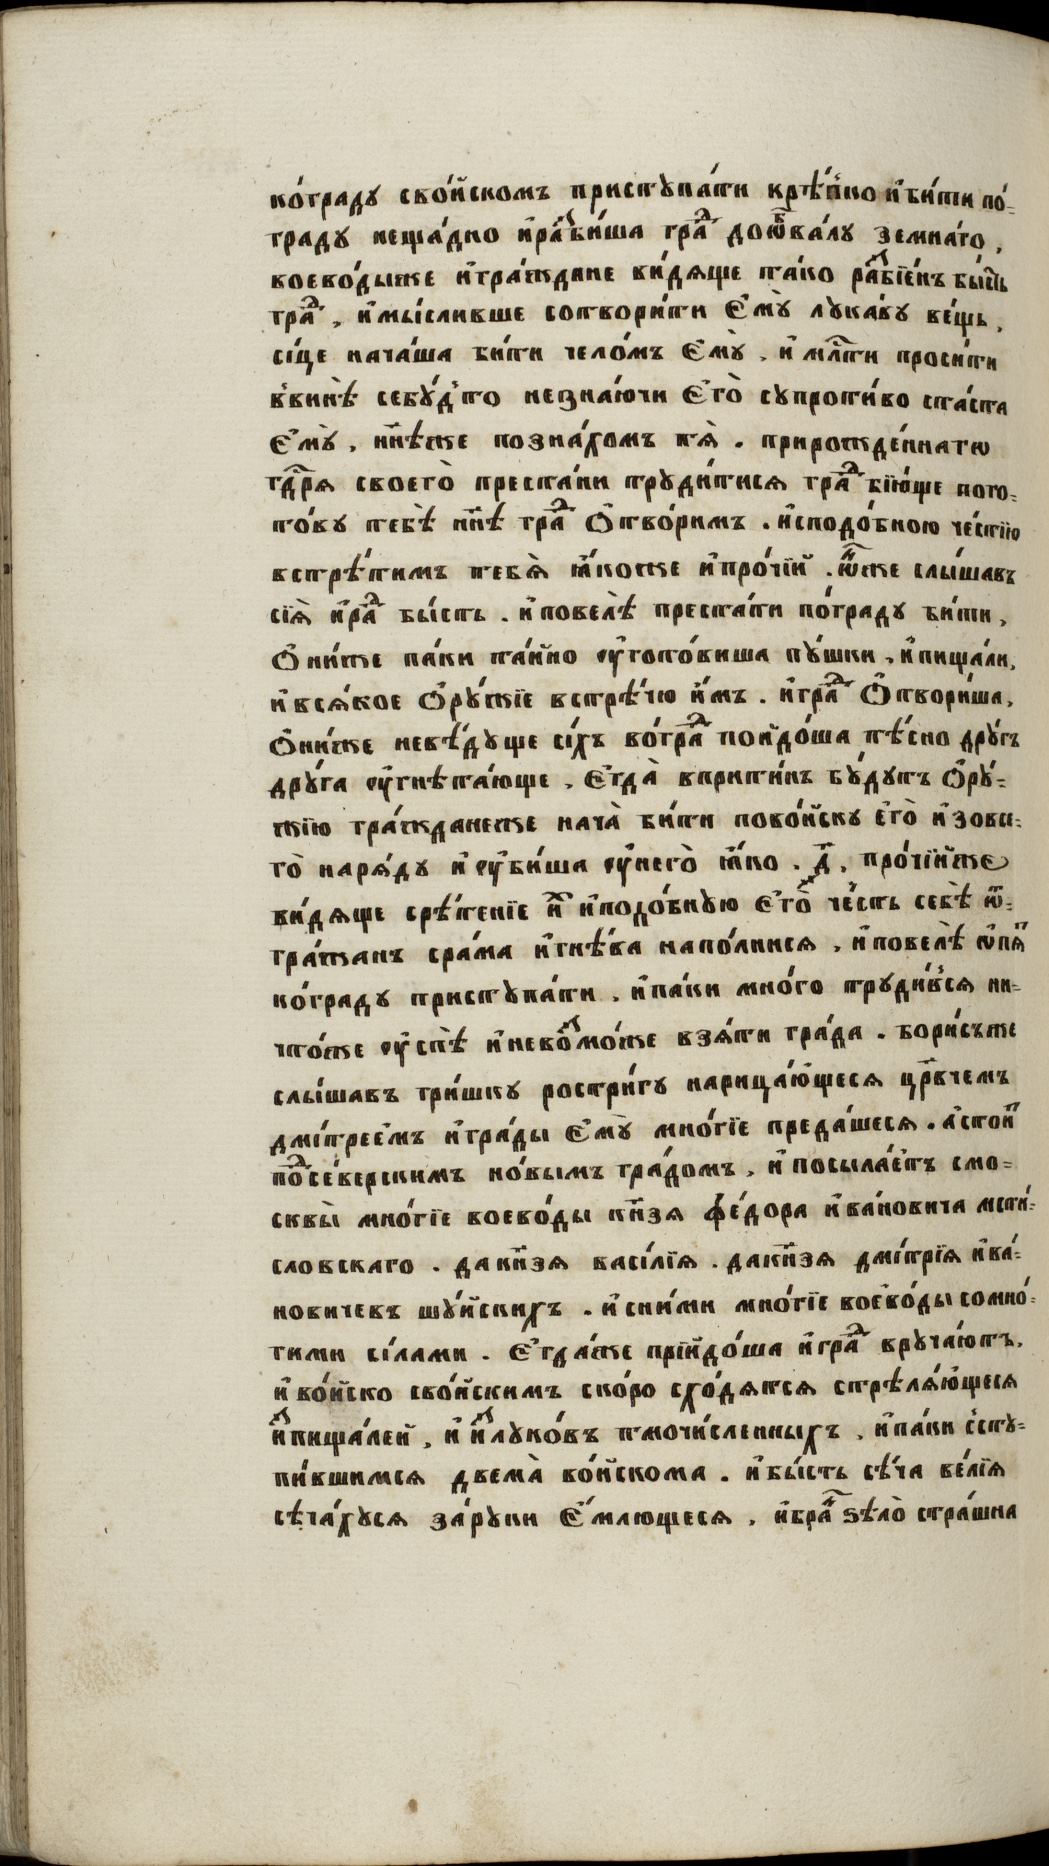 ко́граду сво́йскомъ приступа́ти крѣ́пко и҆би́ти по́-
граду неща́дно и҆раⷥби́ша граⷣ доѿва́лу земна́го,
воево́дыже и҆гра́ждане ви́дяще та́ко раⷥбїе́нъ бы́сть
граⷣ, и҆мы́сливше сотвори́ти Є҆мꙋ̀ лука́ву ве́щь,
сі́це нача́ша би́ти чело́мъ Є҆мꙋ̀, и҆ млⷭ҇ти проси́ти
в̾винѣ̀ себу́дто незна́ючи Є҆го̀ супроти́во ста́ста
Є҆мꙋ̀, нн҃ѣже позна́хомъ тѧ̀. прирожде́ннагѡ
гдⷭ҇рѧ своего̀ преста́ни труди́тисѧ граⷣ бїю́ще пото-
то́му тебѣ̀ нн҃ѣ граⷣ Ѻ҆тво́римъ. и҆сподо́бною че́стїю
встрѣ́тимъ тебѧ̀ ꙗ҆́коже и҆про́чїй. ѻ҆́нже слы́шавъ
сїѧ̀ и҆раⷣ бы́сть. и҆повелѣ̀ преста́ти по́граду би́ти,
Ѻ҆ни́же па́ки та́йно ᲂу҆гото́виша пу́шки, и҆пища́ли,
и҆всѧ́кое Ѻ҆ру́жїе встрѣ́чю и҆̀мъ. и҆граⷣ Ѻ҆твори́ша,
Ѻ҆ни́же невѣ́дуще сі́хъ во́граⷣ пойдо́ша тѣ́сно дрꙋ́гъ
дрꙋ́га ᲂу҆гнѣта́юще, Є҆гда̀ вприти́нъ бу́дутъ Ѻ҆ру́-
жїю гра́жданеже нача̀ би́ти пово́йску є҆го̀ и҆зовсе-
го̀ нарѧ́ду и҆ ᲂу҆би́ша ᲂу҆него̀ ꙗ҆́ко. д҃, про́чїйже
ви́дѧще срѣ́тенїе и҆̀ⷯ и҆подо́бную Є҆го̀ че́сть себѣ̀ ѿ-
гра́жанъ сра́ма и҆гнѣ́ва напо́лнисѧ, и҆повелѣ̀ ѡ҆пѧⷮ
ко́граду приступа́ти, и҆па́ки мно́го труди́всѧ ни-
что́же ᲂу҆спѣ̀ и҆невоⷥмо́же взѧ́ти гра́да. бори́съже
слы́шавъ гри́шку ростри́гу нарица́ющесѧ црⷭ҇вчемъ
дмі́трее́мъ и҆гра́ды Є҆мꙋ̀ мно́гїе преда́шесѧ. а҆стои́ⷮ
поⷣсе́верскимъ но́вымъ гра́домъ, и҆посыла́етъ смо-
сквы̀ мно́гїе воево́ды кн҃зѧ фе́дора и҆ва́новича мсти́-
словскаго. дакн҃зѧ васі́лїѧ. дакн҃зѧ дмі́трїѧ и҆ва́-
новичевъ шу́йскихъ. и҆сни́ми мно́гїе воево́ды сомно́-
гими сі́лами. Є҆гда́же прїйдо́ша и҆граⷣ вруча́ютъ.
и҆во́йско сво́йскимъ ско́ро схо́дѧтсѧ стрѣлѧ́ющесѧ
и҆ⷥпища́лей, и҆ и҆ⷥлуко́въ тмочи́сленныхъ, и҆па́ки с̾сту-
пи́вшимсѧ двема̀ во́йскома. и҆бы́сть сѣ́ча ве́лїѧ
сѣча́хусѧ за́руки Є҆́млющесѧ, и҆бра́нь ѕѣло̀ стра́шна